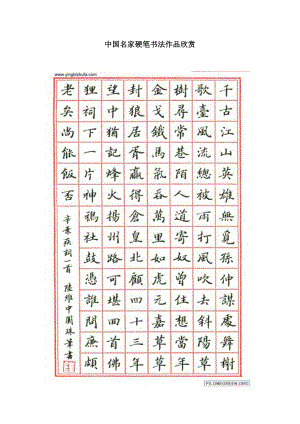 中国名家硬笔书法作品欣赏
千古江山英雄無覓孫仲謀處舞榭
歌臺風流總被雨打風吹去斜陽草
樹尋常巷陌人道寄奴曾住想當年
金戈鐵馬氣吞萬里如虎元嘉草草
封狼居胥贏得倉皇北顧四十三年
望中猶記烽火揚州路可堪回首佛
狸祠下一片神鴉社鼓憑誰問廉頗
老矣尚能飯否
辛棄疾詞一首 陸維中圓珠筆書